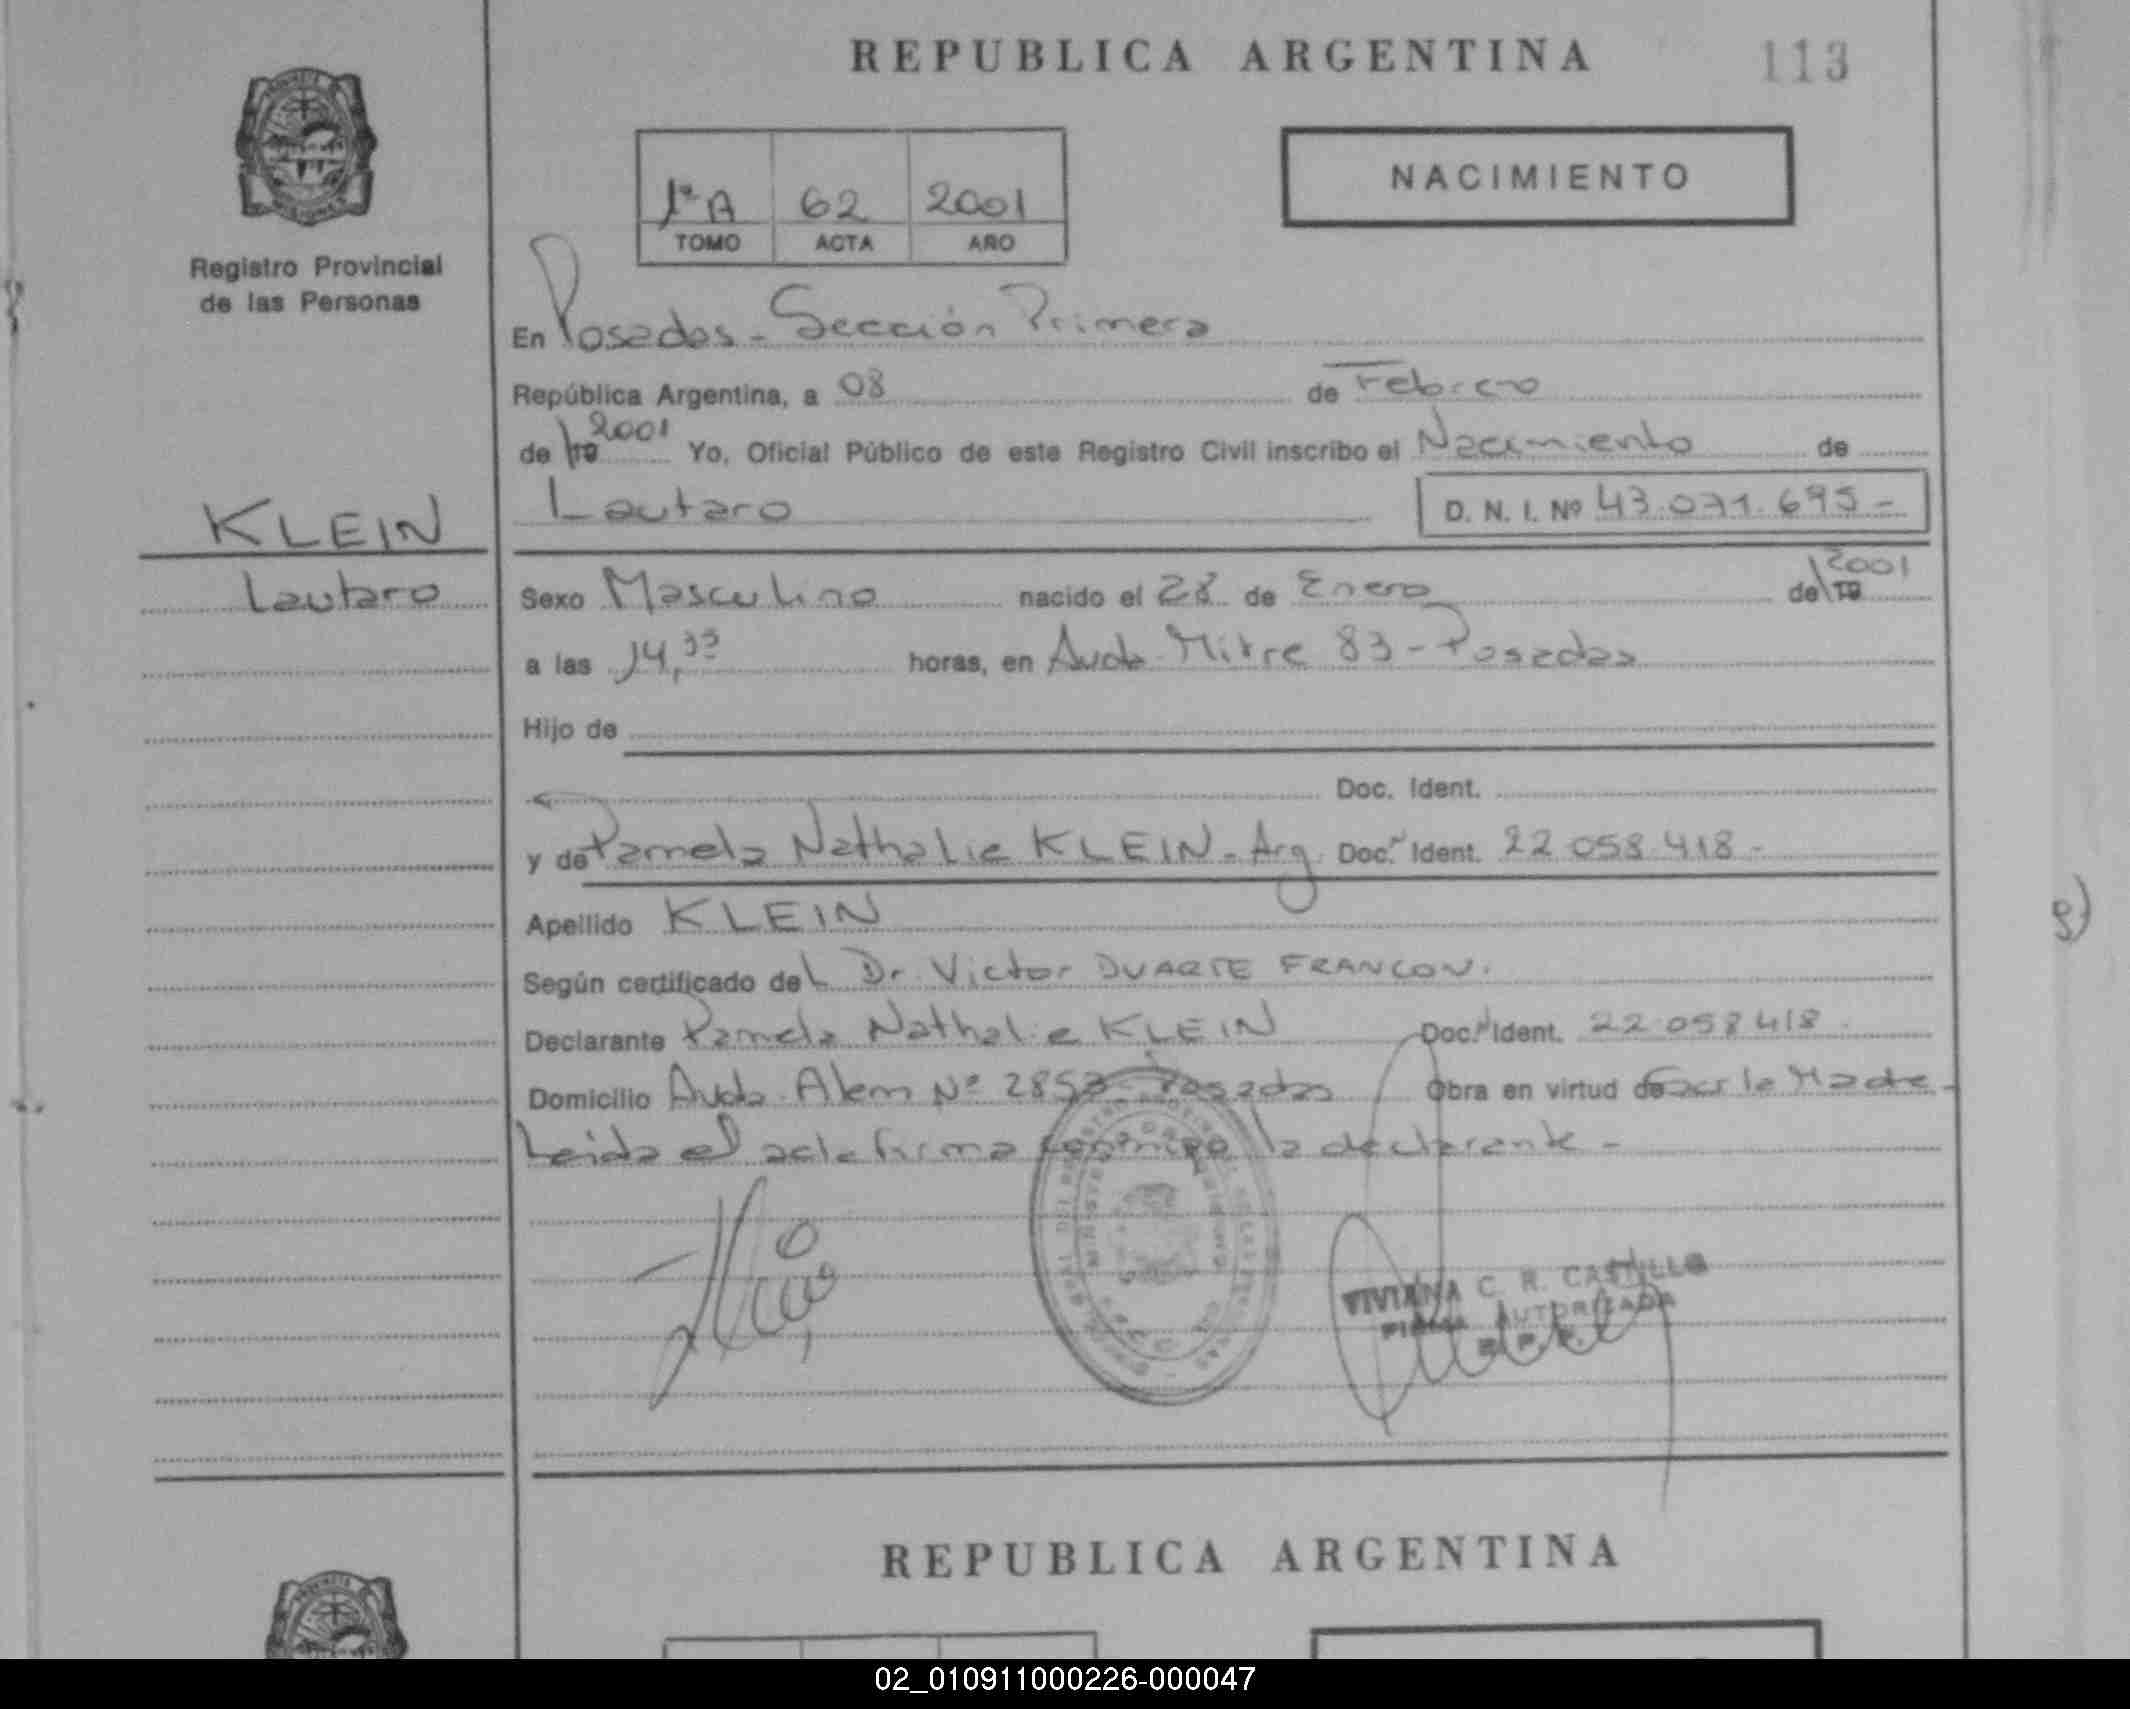 REPUBLICA ARGENTINA
113
NACIMIENTO
1º A 62 2001
TOMO ACTA AÑO
Registro Provincial
de las Personas
En Posadas - Sección Primera
República Argentina, a 08 de Febrero
de 19 2001 Yo, Oficial Público de este Registro Civil inscribo el Nacimiento de
Lautaro D. N. I. Nº 43.071.695 -
KLEIN
Lautaro
Sexo Masculino nacido el 28 de Enero de 19 2001
a las 14,35 horas, en Avda. Mitre 83 - Posadas
Hijo de
Doc. Ident.
y de Pamela Nathalie KLEIN - Arg. Doc. Ident. 22.058.418 -
Apellido KLEIN
Según certificado del Dr. Victor DUARTE FRANCON.
Declarante Pamela Nathalie KLEIN Doc. Ident. 22.058.418
Domicilio Avda. Alem Nº 2853 - Posadas Obra en virtud de ser la Madre -
Leida el acta firma conmigo la declarante -
VIVIANA C. R. CASTILLO
FIRMA AUTORIZADA
REPUBLICA ARGENTINA
02_010911000226-000047